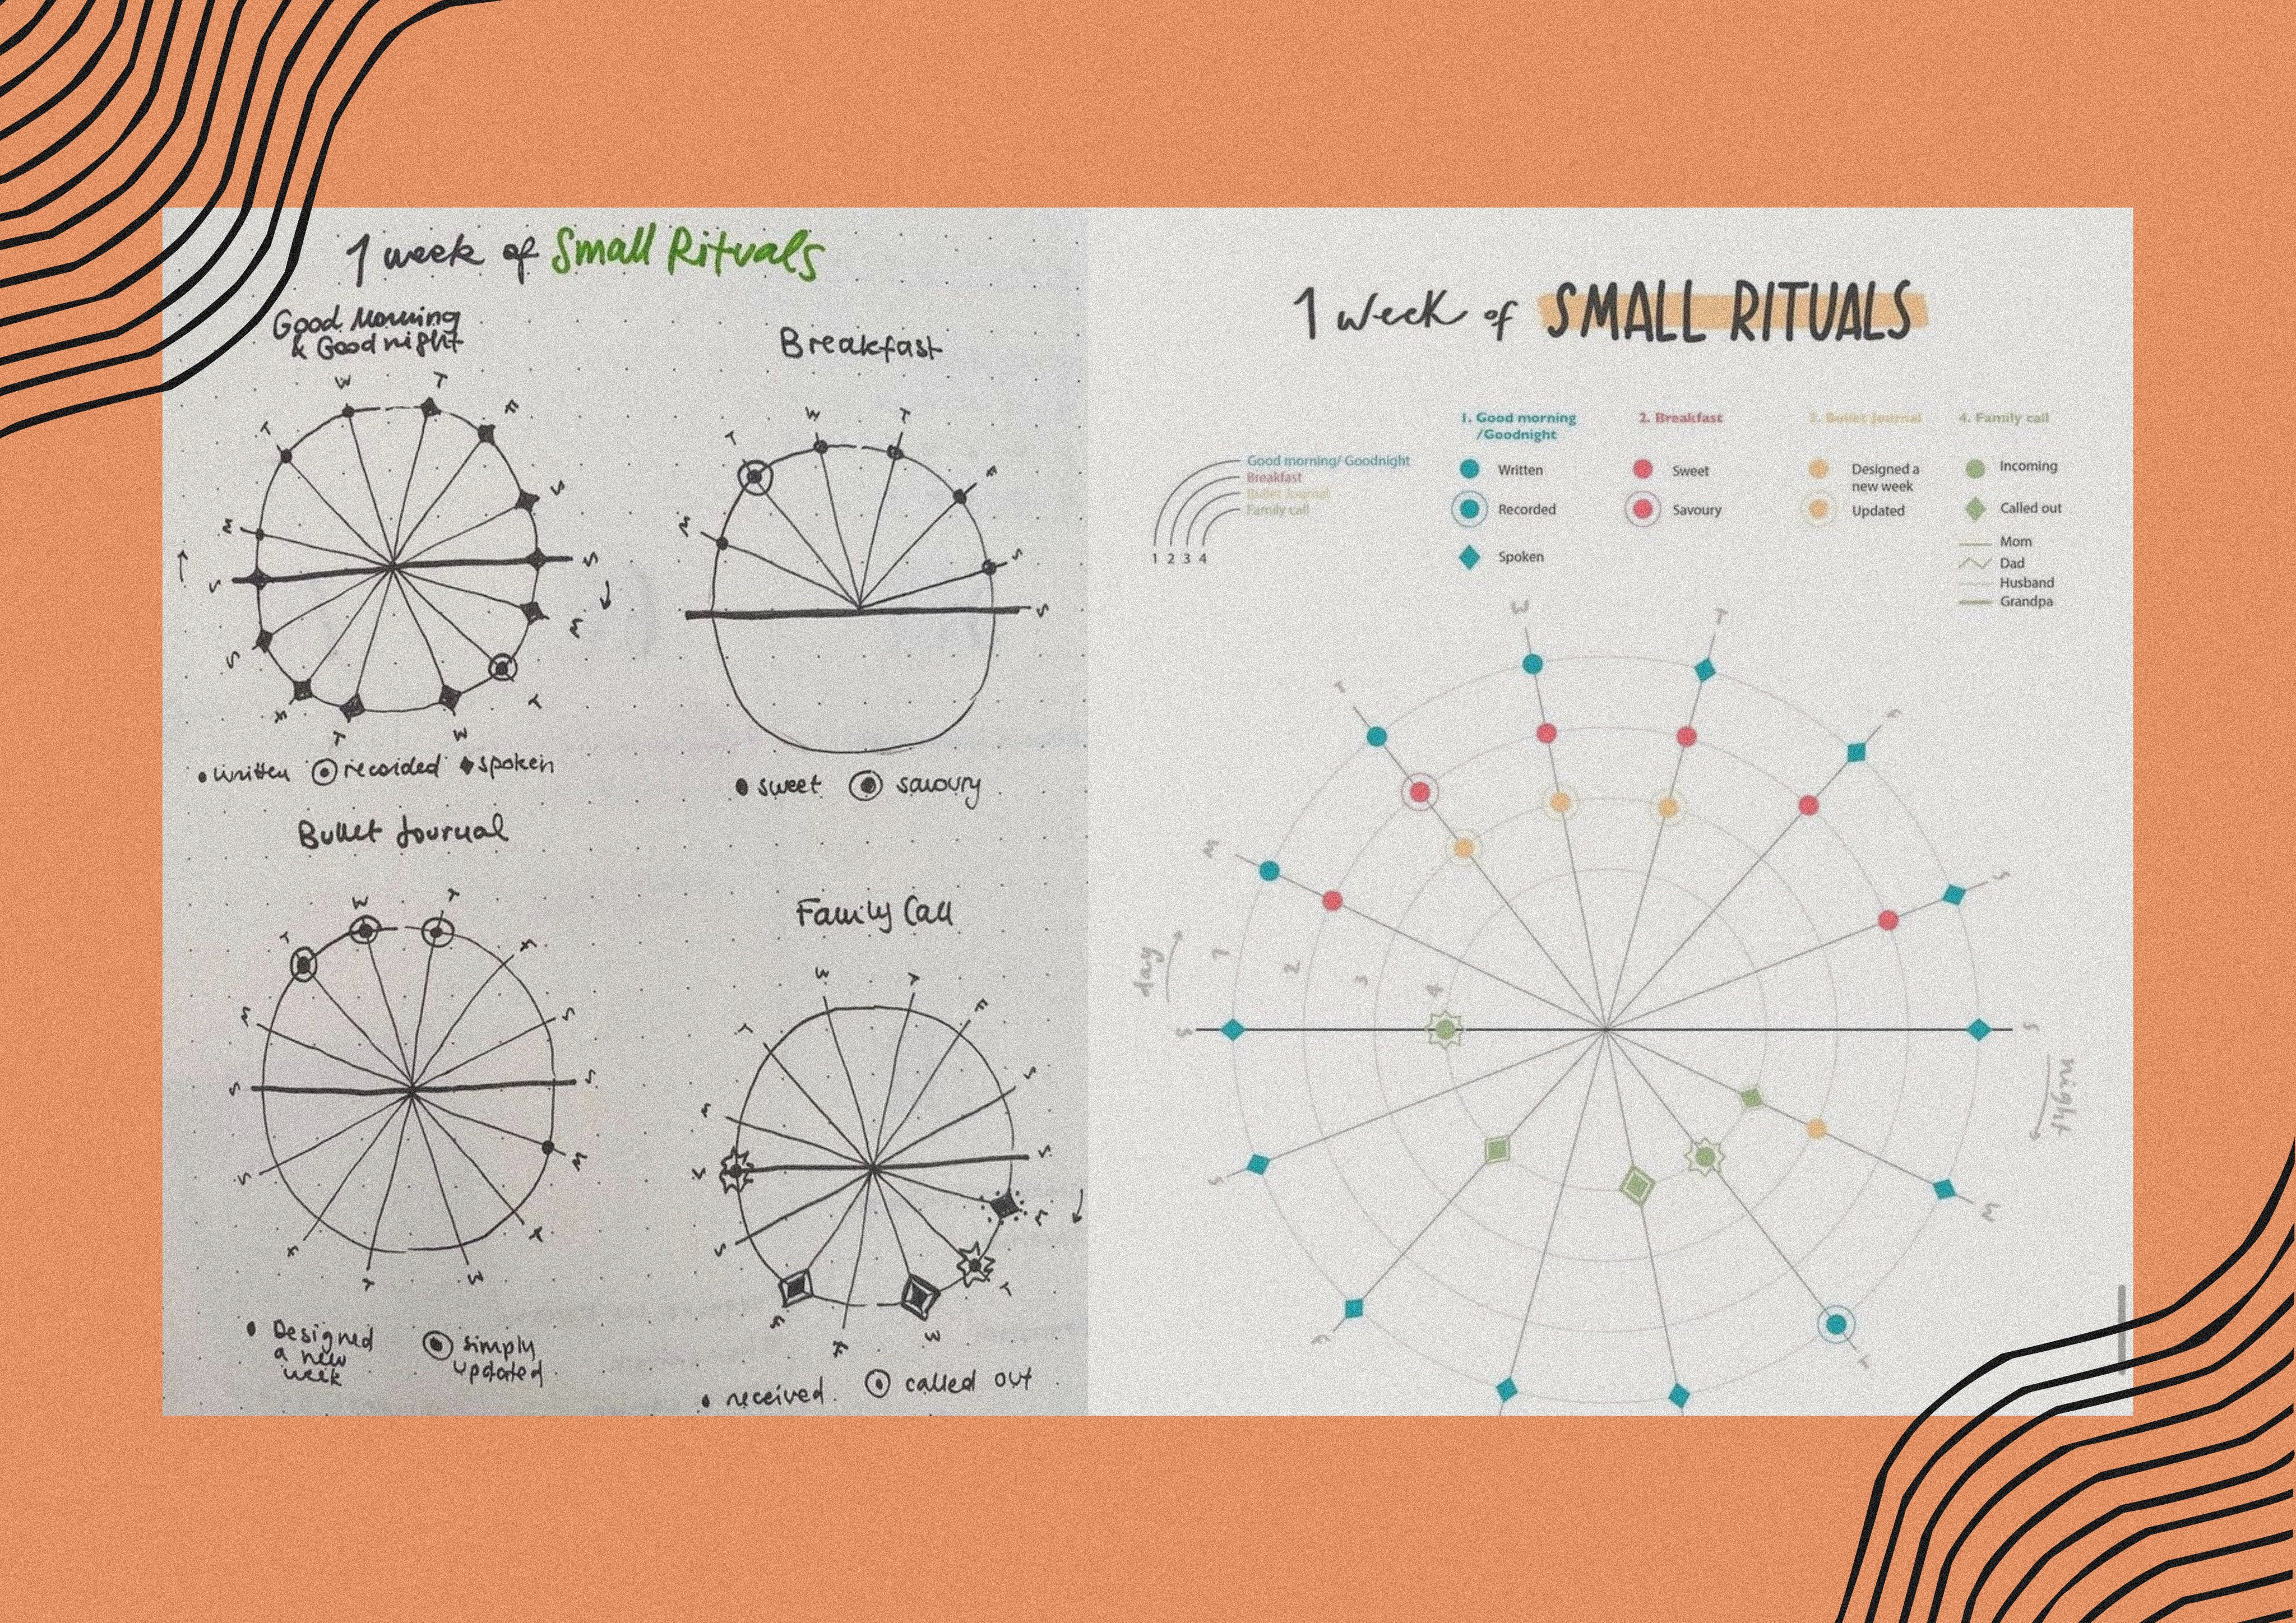 1 week of Small Rituals
Good Morning
& Good night
W T
T F
M S
S S
S M
F T
T W
written recorded spoken
Breakfast
W T
T F
M S
S
sweet savoury
Bullet Journal
W T
T F
M S
S S
S M
F T
T W
Designed
a new
week
simply
updated
Family Call
W T
T F
M S
S S
S M
F T
W
received called out
1 week of SMALL RITUALS
Good morning/ Goodnight
Breakfast
Bullet Journal
Family call
1 2 3 4
1. Good morning
/Goodnight
Written
Recorded
Spoken
2. Breakfast
Sweet
Savoury
3. Bullet Journal
Designed a
new week
Updated
4. Family call
Incoming
Called out
Mom
Dad
Husband
Grandpa
W T
T F
M S
day 1 2 3 4
S S
night
S M
F T